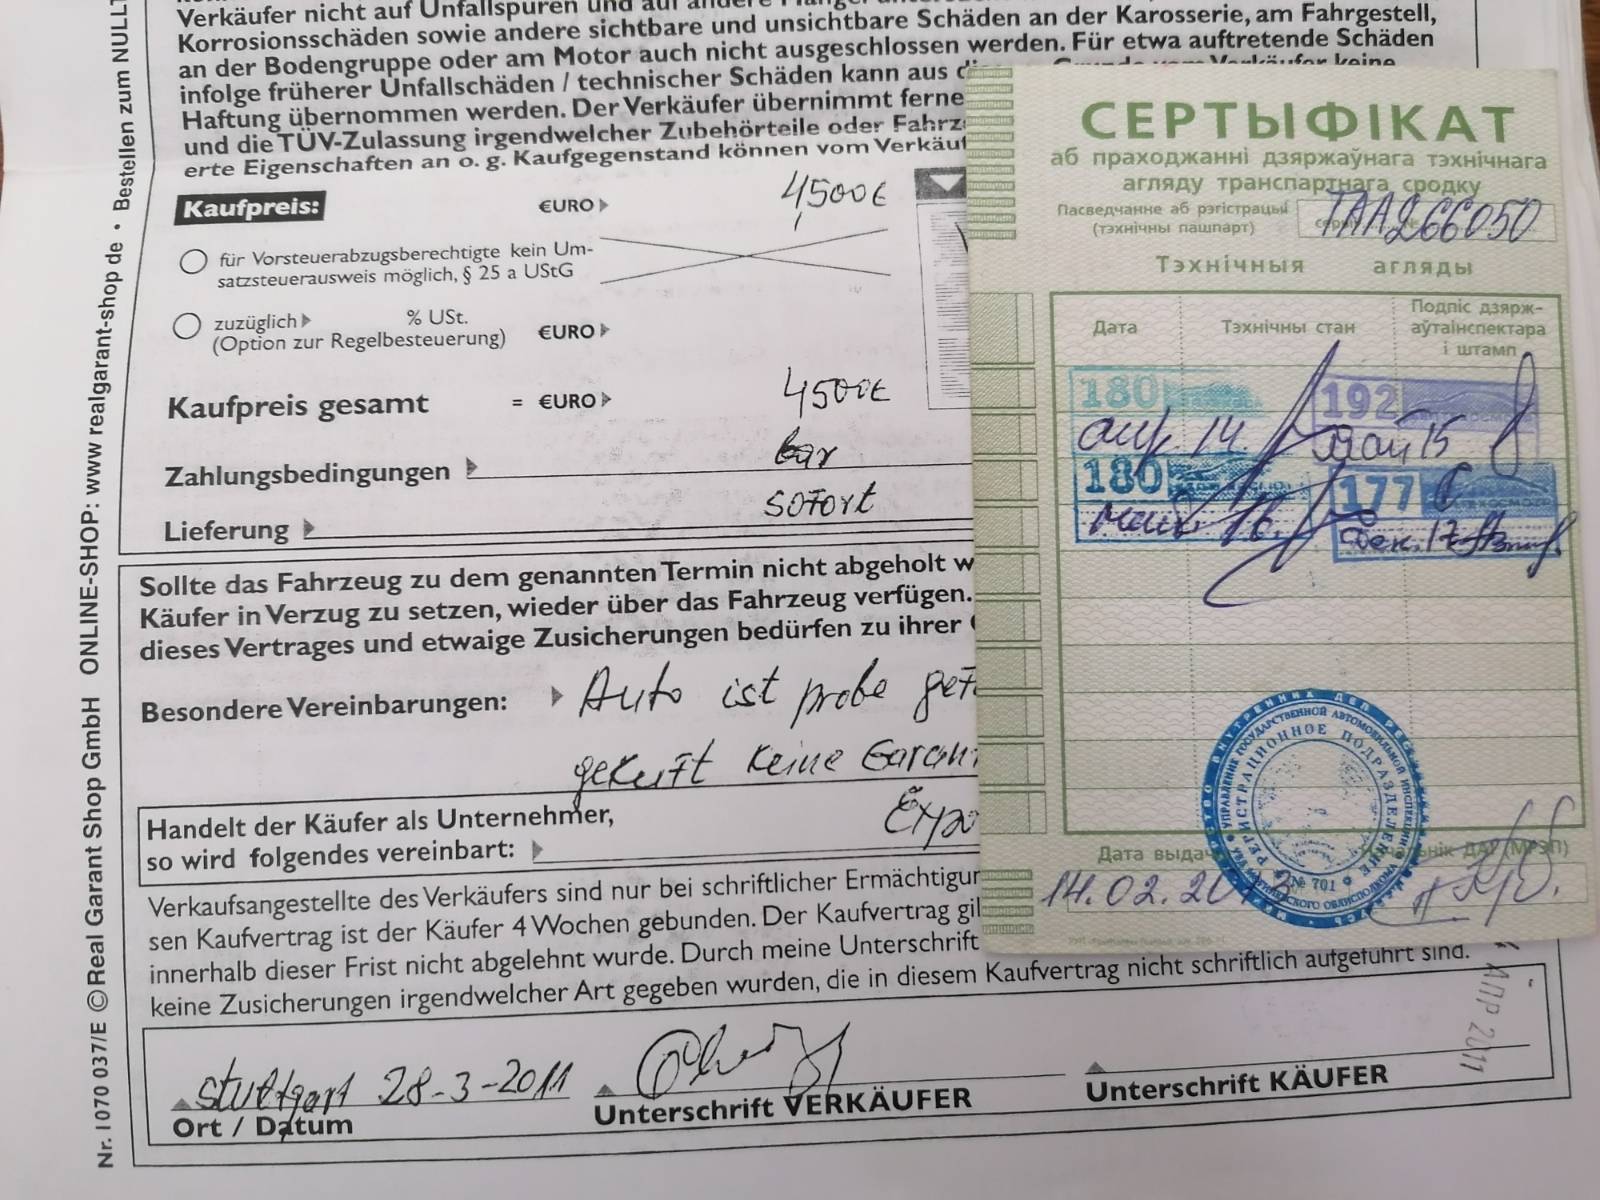 Verkäufer nicht auf Unfallspuren und auf andere Mängel
Korrosionsschäden sowie andere sichtbare und unsichtbare Schäden an der Karosserie, am Fahrgestell,
an der Bodengruppe oder am Motor auch nicht ausgeschlossen werden. Für etwa auftretende Schäden
infolge früherer Unfallschäden / technischer Schäden kann aus Verkäufer keine
Haftung übernommen werden. Der Verkäufer übernimmt ferne
und die TÜV-Zulassung irgendwelcher Zubehörteile oder Fahrz
erte Eigenschaften an o. g. Kaufgegenstand können vom Verkäuf
Kaufpreis: €URO 4500€
für Vorsteuerabzugsberechtigte kein Um-
satzsteuerausweis möglich, § 25 a UStG
zuzüglich % USt.
(Option zur Regelbesteuerung) €URO
Kaufpreis gesamt = €URO 4500€
Zahlungsbedingungen bar
Lieferung sofort
Sollte das Fahrzeug zu dem genannten Termin nicht abgeholt w
Käufer in Verzug zu setzen, wieder über das Fahrzeug verfügen.
dieses Vertrages und etwaige Zusicherungen bedürfen zu ihrer
Besondere Vereinbarungen: Auto ist probe gef
gekauft keine Garan
Handelt der Käufer als Unternehmer,
so wird folgendes vereinbart: Expo
Verkaufsangestellte des Verkäufers sind nur bei schriftlicher Ermächtigun
sen Kaufvertrag ist der Käufer 4 Wochen gebunden. Der Kaufvertrag gil
innerhalb dieser Frist nicht abgelehnt wurde. Durch meine Unterschrift
keine Zusicherungen irgendwelcher Art gegeben wurden, die in diesem Kaufvertrag nicht schriftlich aufgeführt sind.
Stuttgart 28-3-2011
Ort / Datum
Unterschrift VERKÄUFER
Unterschrift KÄUFER
АПР 2011
Nr. I 070 037/E © Real Garant Shop GmbH ONLINE-SHOP: www.realgarant-shop.de • Bestellen zum NULLT
СЕРТЫФІКАТ
аб праходжанні дзяржаўнага тэхнічнага
агляду транспартнага сродку
Пасведчанне аб рэгістрацыі
(тэхнічны пашпарт)
ТАА266050
Тэхнічныя агляды
Дата
Тэхнічны стан
Подпіс дзярж-
аўтаінспектара
і штамп
180
192
14
май 15
180
177
16
17
РЕГИСТРАЦИОННОЕ ПОДРАЗДЕЛЕНИЕ
УПРАВЛЕНИЕ ГОСУДАРСТВЕННОЙ АВТОМОБИЛЬНОЙ ИНСПЕКЦИИ
№ 701
Дата выдачы
14.02.2013
ДАІ (МРЭП)